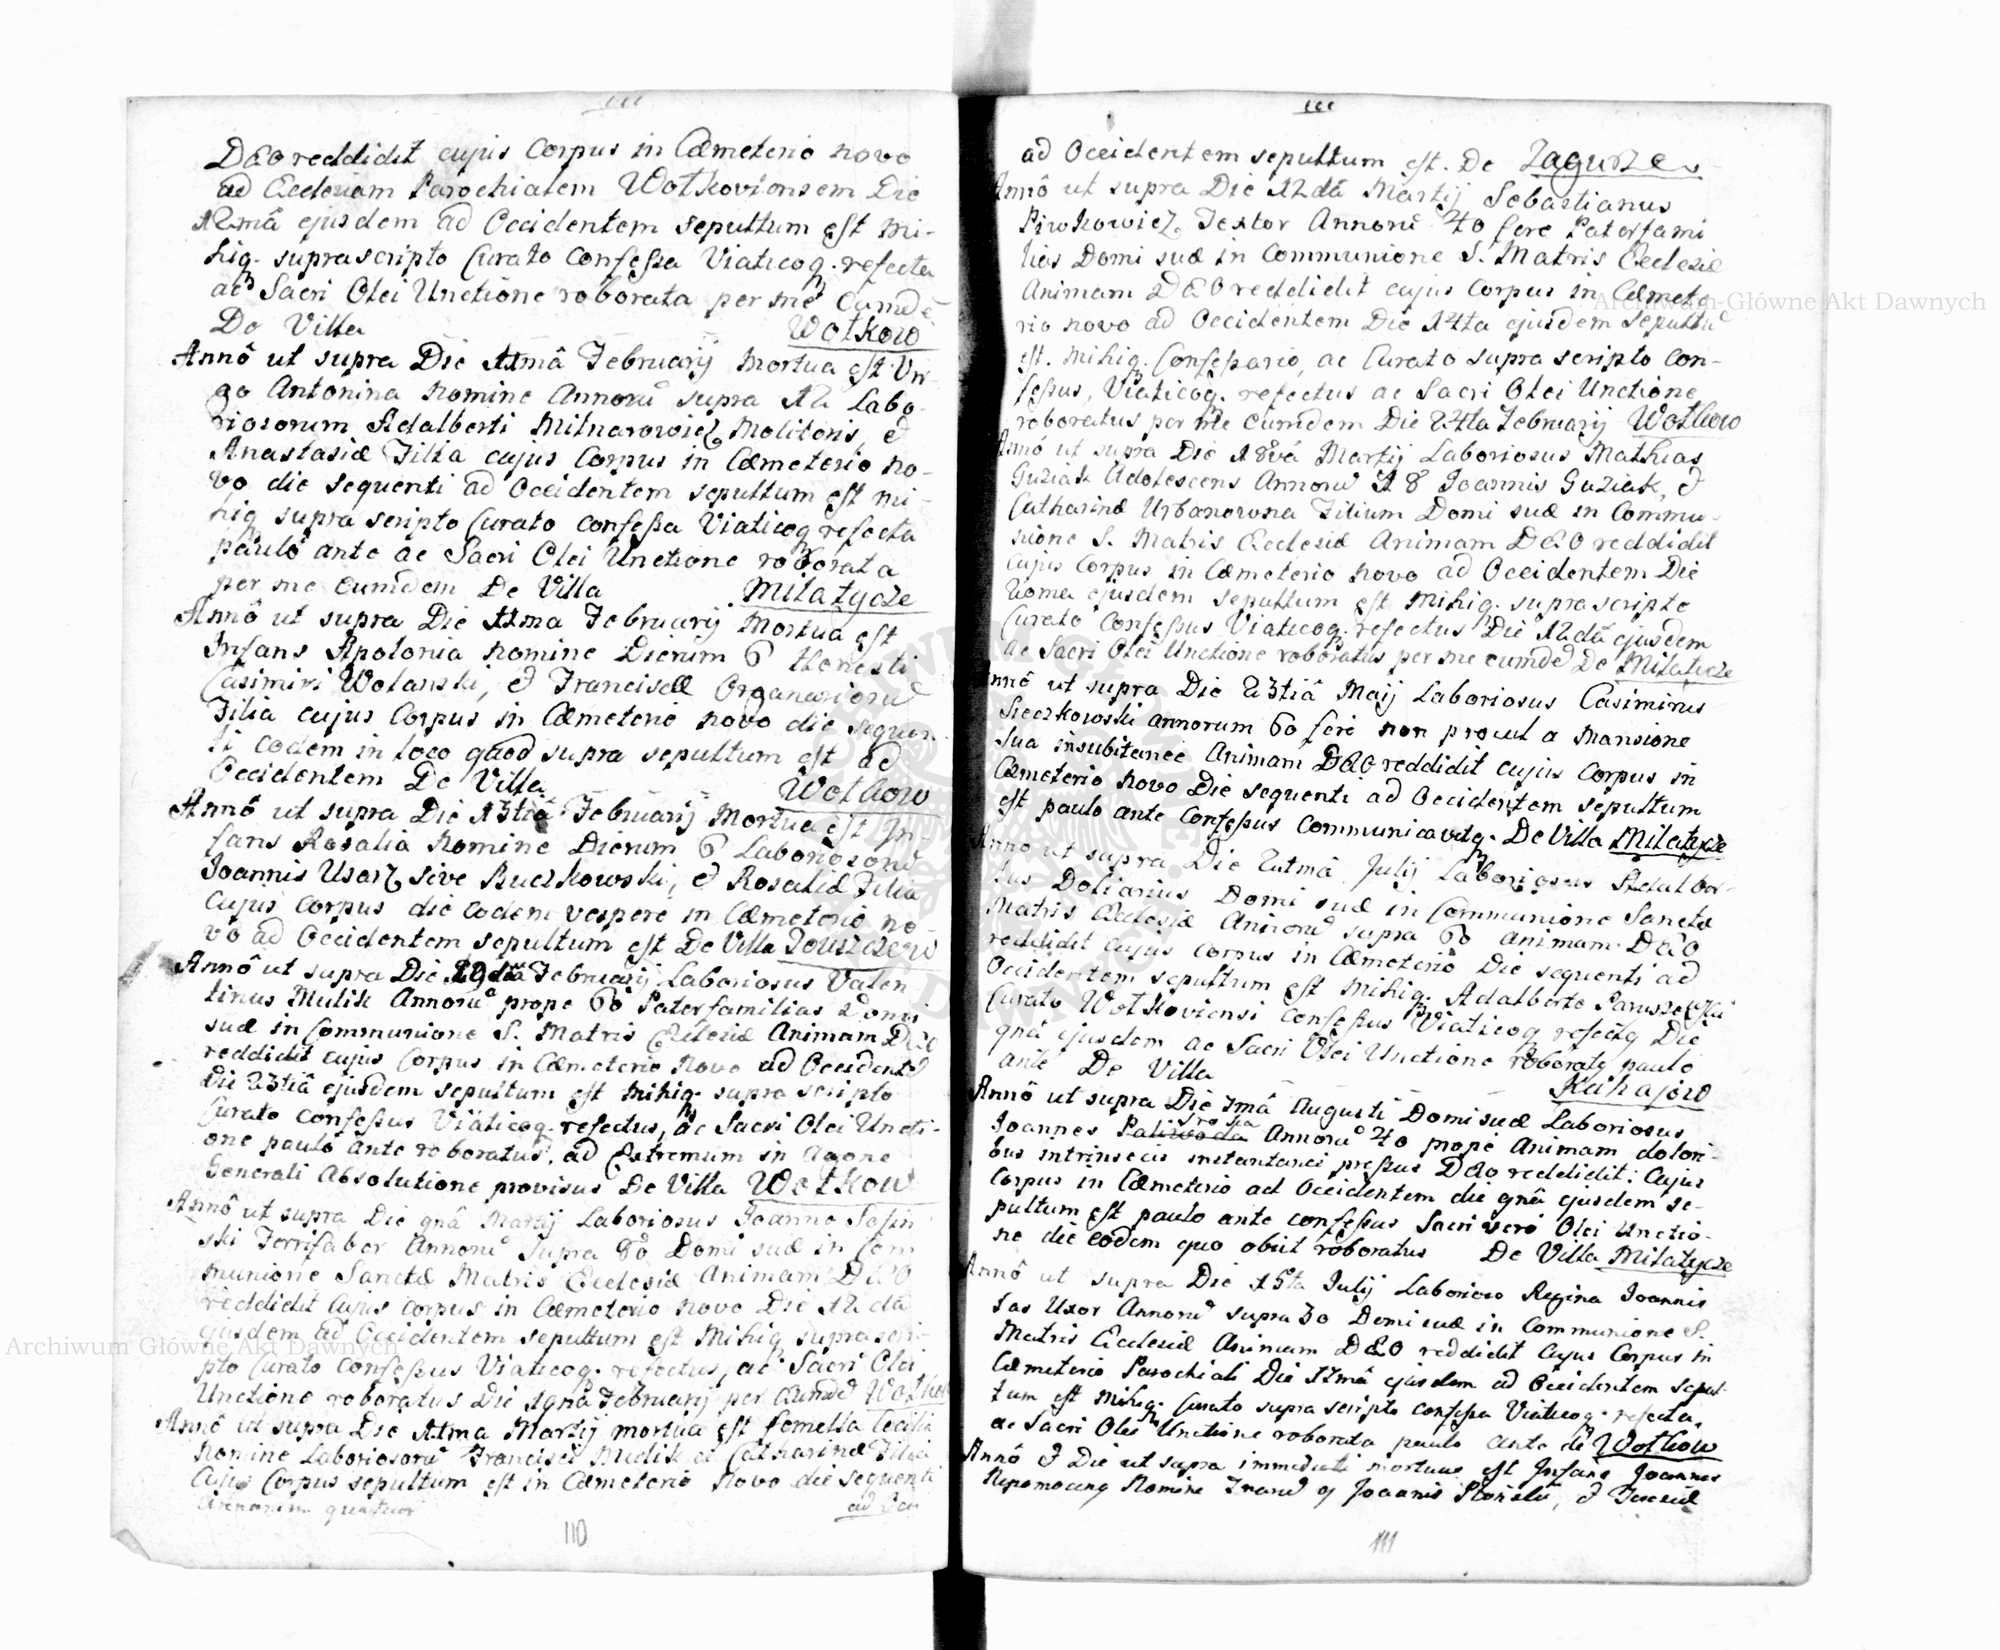 DEO reddidit cujus Corpus in Cæmeterio novo
ad Ecclesiam Parochialem Wołkoviensem Die
12mâ ejusdem ad Occidentem sepultum est mi-
hiq. suprascripto Curato Confessa Viaticoq. refecta
ac Sacri Olei Unctione roborata per me eumdē
De Villa Wołkow
Annô ut supra Die 11mâ Februarij mortua est Vir-
go Antonina nomine Annorū supra 12 Labo-
riosorum Adalberti Milnarowicz Molitoris, &
Anastasiæ Filia cujus Corpus in Cæmeterio no-
vo die sequenti ad Occidentem sepultum est mi-
hiq supra scripto Curato confessa Viaticoq refecta
paulô ante ac Sacri Olei Unctione roborata
per me eumdem De Villa Milatycze
Annô ut supra Die 11ma Februarij mortua est
Infans Apolonia nomine Dierum 6 Honesti
Casimiri Wolanski, & Franciscæ Organariorū
Filia cujus Corpus in Cæmeterio novo die sequen
ti eodem in loco quod supra sepultum est ad
Occidentem De Villa Wołkow
Annô ut supra Die 13tiâ Februarij Mortua est In
fans Rosalia Nomine Dierum 6 Laboriosorū
Joannis Usarz sive Buczkowski, & Rosaliæ Filia
Cujus Corpus die eodem vespere in Cæmeterio no-
vo ad Occidentem sepultum est De Villa
Annô ut supra Die Februarij Laboriosus Valen
tinus Mulik Annorū prope 60 Paterfamilias Domi
suæ in Communione S. Matris Ecclesiæ Animam DEO
reddidit cujus Corpus in Cæmeterio Novo ad Occidentē
Die 23tiâ ejusdem sepultum est mihiq. supra scripto
Curato confessus Viaticoq. refectus, ac Sacri Olei Uncti-
one paulô ante roboratus, ad Extremum in Agone
Generali Absolutione provisus De Villa Wołkow
Annô ut supra Die 9nâ Martij Laboriosus Joannes
ski Ferrifaber Annorū supra 80 Domi suæ in Com
munione Sanctæ Matris Ecclesiæ Animam DEO
reddidit Cujus Corpus in Cæmeterio novo Die 12da
ejusdem ad Occidentem sepultum est Mihiq suprascri-
pto Curato Confessus Viaticoq. refectus, ac Sacri Olei
Unctione roboratus Die Februarij per Eumdē Wołkow
Annô ut supra Die 11ma Martij mortua est femella Cecilia
Nomine Laboriosorū Francisci Mulik et Catharinæ Filia
Cujus Corpus sepultum est in Cæmeterio Novo die sequenti
Annorum quatuor ad Occi
110
ad Occidentem sepultum est. De Zagurze
Annô ut supra Die 12dâ Martij Sebastianus
Piwkowicz Textor Annorū 40 fere Paterfami
lias Domi suæ in Communione S. Matris Ecclesiæ
Animam DEO reddidit cujus Corpus in Cæmete
rio novo ad Occidentem Die 14ta ejusdem Sepultū
est. Mihiq. Confessario, ac Curato supra scripto con-
fessus, Viaticoq. refectus ac Sacri Olei Unctione
roboratus per me eumdem Die 24ta Februarij Wołkow
Annô ut supra Die 18vâ Martij Laboriosus Mathias
Guziak Adolescens Annorū 18 Joannis Guziak, &
Catharinæ Urbanowna Filium Domi suæ in Commu-
nione S. Matris Ecclesiæ Animam DEO reddidit
cujus Corpus in Cæmeterio novo ad Occidentem Die
ejusdem sepultum est Mihiq. supra scripto
Curato Confessus Viaticoq. refectus Die 12dâ ejusdem
ac Sacri Olei Unctione roboratus per me eumdē De Milatycze
Annô ut supra Die 23tiâ Maij Laboriosus Casimirus
Sieczkowski annorum 60 fere non procul a Mansione
Sua insubitanee Animam DEO reddidit cujus Corpus in
Cæmeterio novo Die sequenti ad Occidentem sepultum
est paulo ante Confessus Communicavitq. De Villa Milatycze
Anno ut supra Die Julij Laboriosus Adalber-
tus Doliarius Domi suæ in Communione Sanctæ
Matris Ecclesiæ Annorū supra 60 animam DEO
reddidit cujus Corpus in Cæmeterio Die sequenti ad
Occidentem sepultum est Mihiq. Adalberto
Curato Wołkoviensi Confessus Viaticoq refectq Die
9nâ ejusdem ac Sacri Olei Unctione roboratq paulo
ante De Villa Kuhajow
Annô ut supra Die 7mâ Augusti Domi suæ Laboriosus
Joannes Paliwoda Annorū 40 prope Animam dolori-
bus intrinsecis instantanei pressus DEO reddidit: Cujus
Corpus in Cæmeterio ad Occidentem die 9nâ ejusdem se-
pultum est paulo ante confessus Sacri verô Olei Unctio-
ne die eodem quo obiit roboratus De Villa Milatycze
Annô ut supra Die 15ta Julij Laboriosa Regina Joannis
Uxor Annorū supra 30 Domi suæ in Communione S.
Matris Ecclesiæ Animam DEO reddidit Cujus Corpus in
Cæmeterio Parochiali Die 17mâ ejusdem ad Occidentem sepul-
tum est Mihiq. Curato supra scripto confessa Viaticoq. refecta,
ac Sacri Olei Unctione roborata paulo ante de Wołkow
Annô & Die ut supra immediati mortuus est Infans Joannes
Nepomoceng Nomine Joannis &
111
Archiwum Główne Akt Dawnych
Archiwum Główne Akt Dawnych